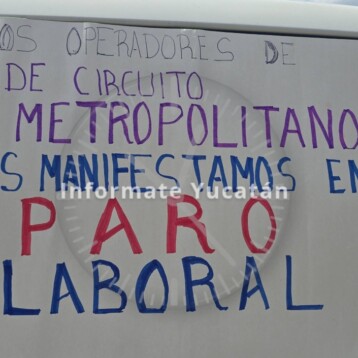 OS OPERADORES DE
DE CIRCUITO
METROPOLITANO
S MANIFESTAMOS EN
Informate Yucatán
PARO
LABORAL